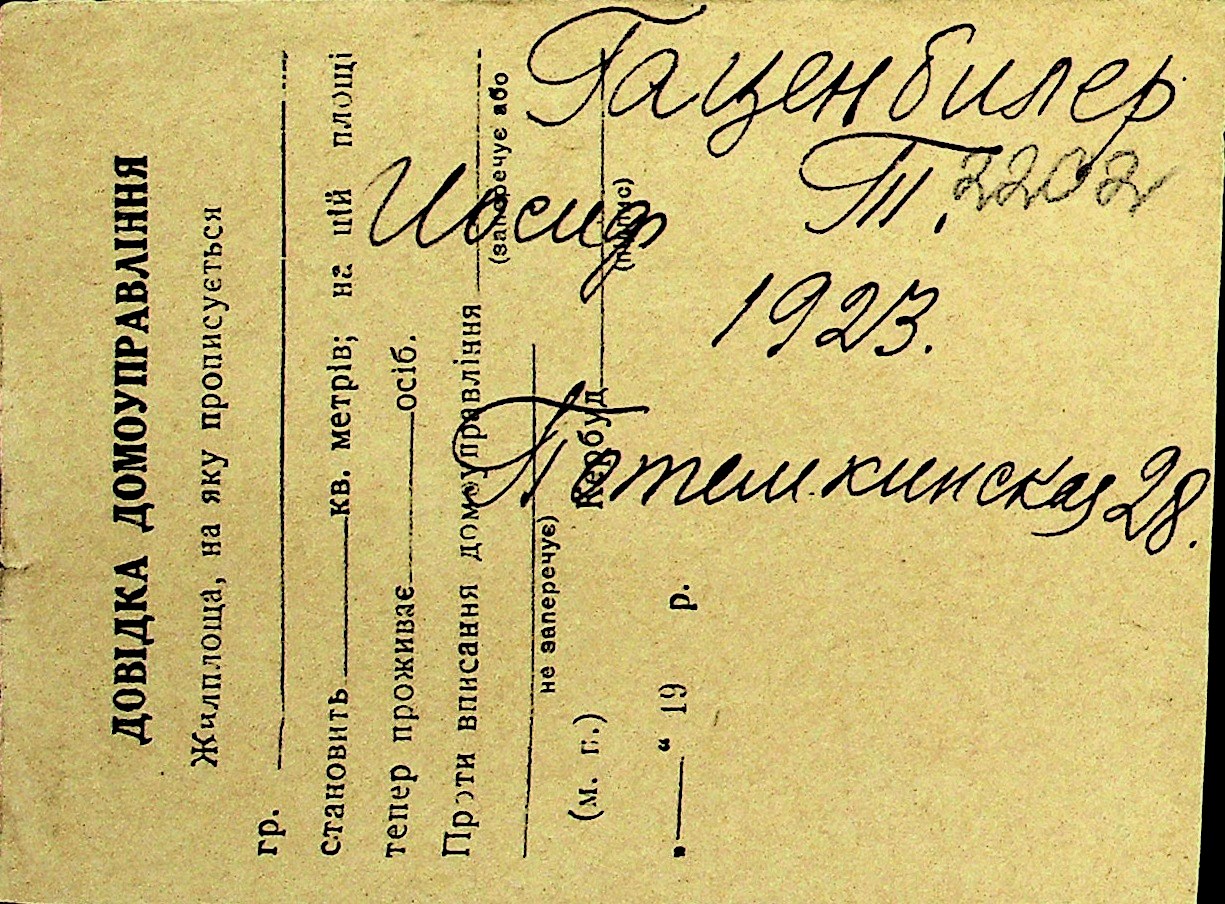 ДОВІДКА ДОМОУПРАВЛІННЯ
Жилплоща, на яку прописується
гр.
становить кв. метрів; на цій площі
тепер проживає осіб.
Проти вписання домоуправління
(заперечує або
не заперечує)
(м. п.) Кербуд
(підпис)
„ “ 19 р.
Гаценбилер
Иосиф Т. 2202
1923.
Потемкинская 28.